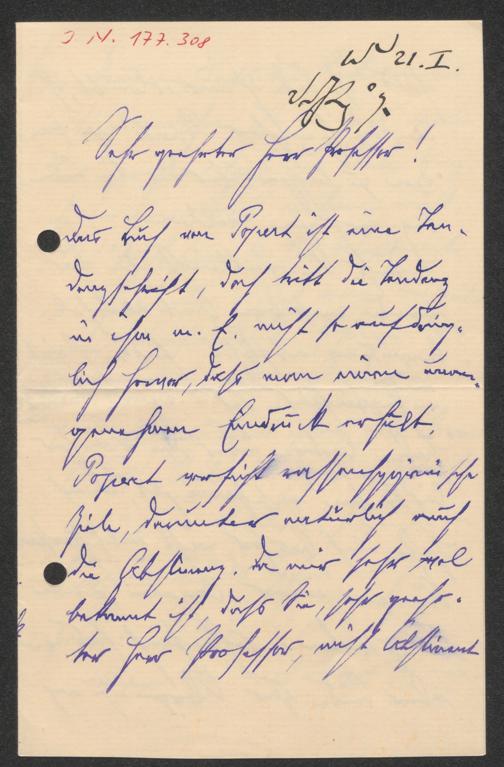 J N. 177.308
21. I.
Sehr geehrter Herr Professor!
das Buch von Popert ist eine Ten-
denzschrift, doch tritt die Tendenz
in ihm m. E. nicht so aufdring-
lich hervor, dass man einen unan-
genehmen Eindruck erhält.
Popert verficht rassenhygienische
Ziele, darunter natürlich auch
die Abstinenz. Da mir sehr wol
bekannt ist, dass Sie, sehr geehr-
ter Herr Professor, nicht Abstinent